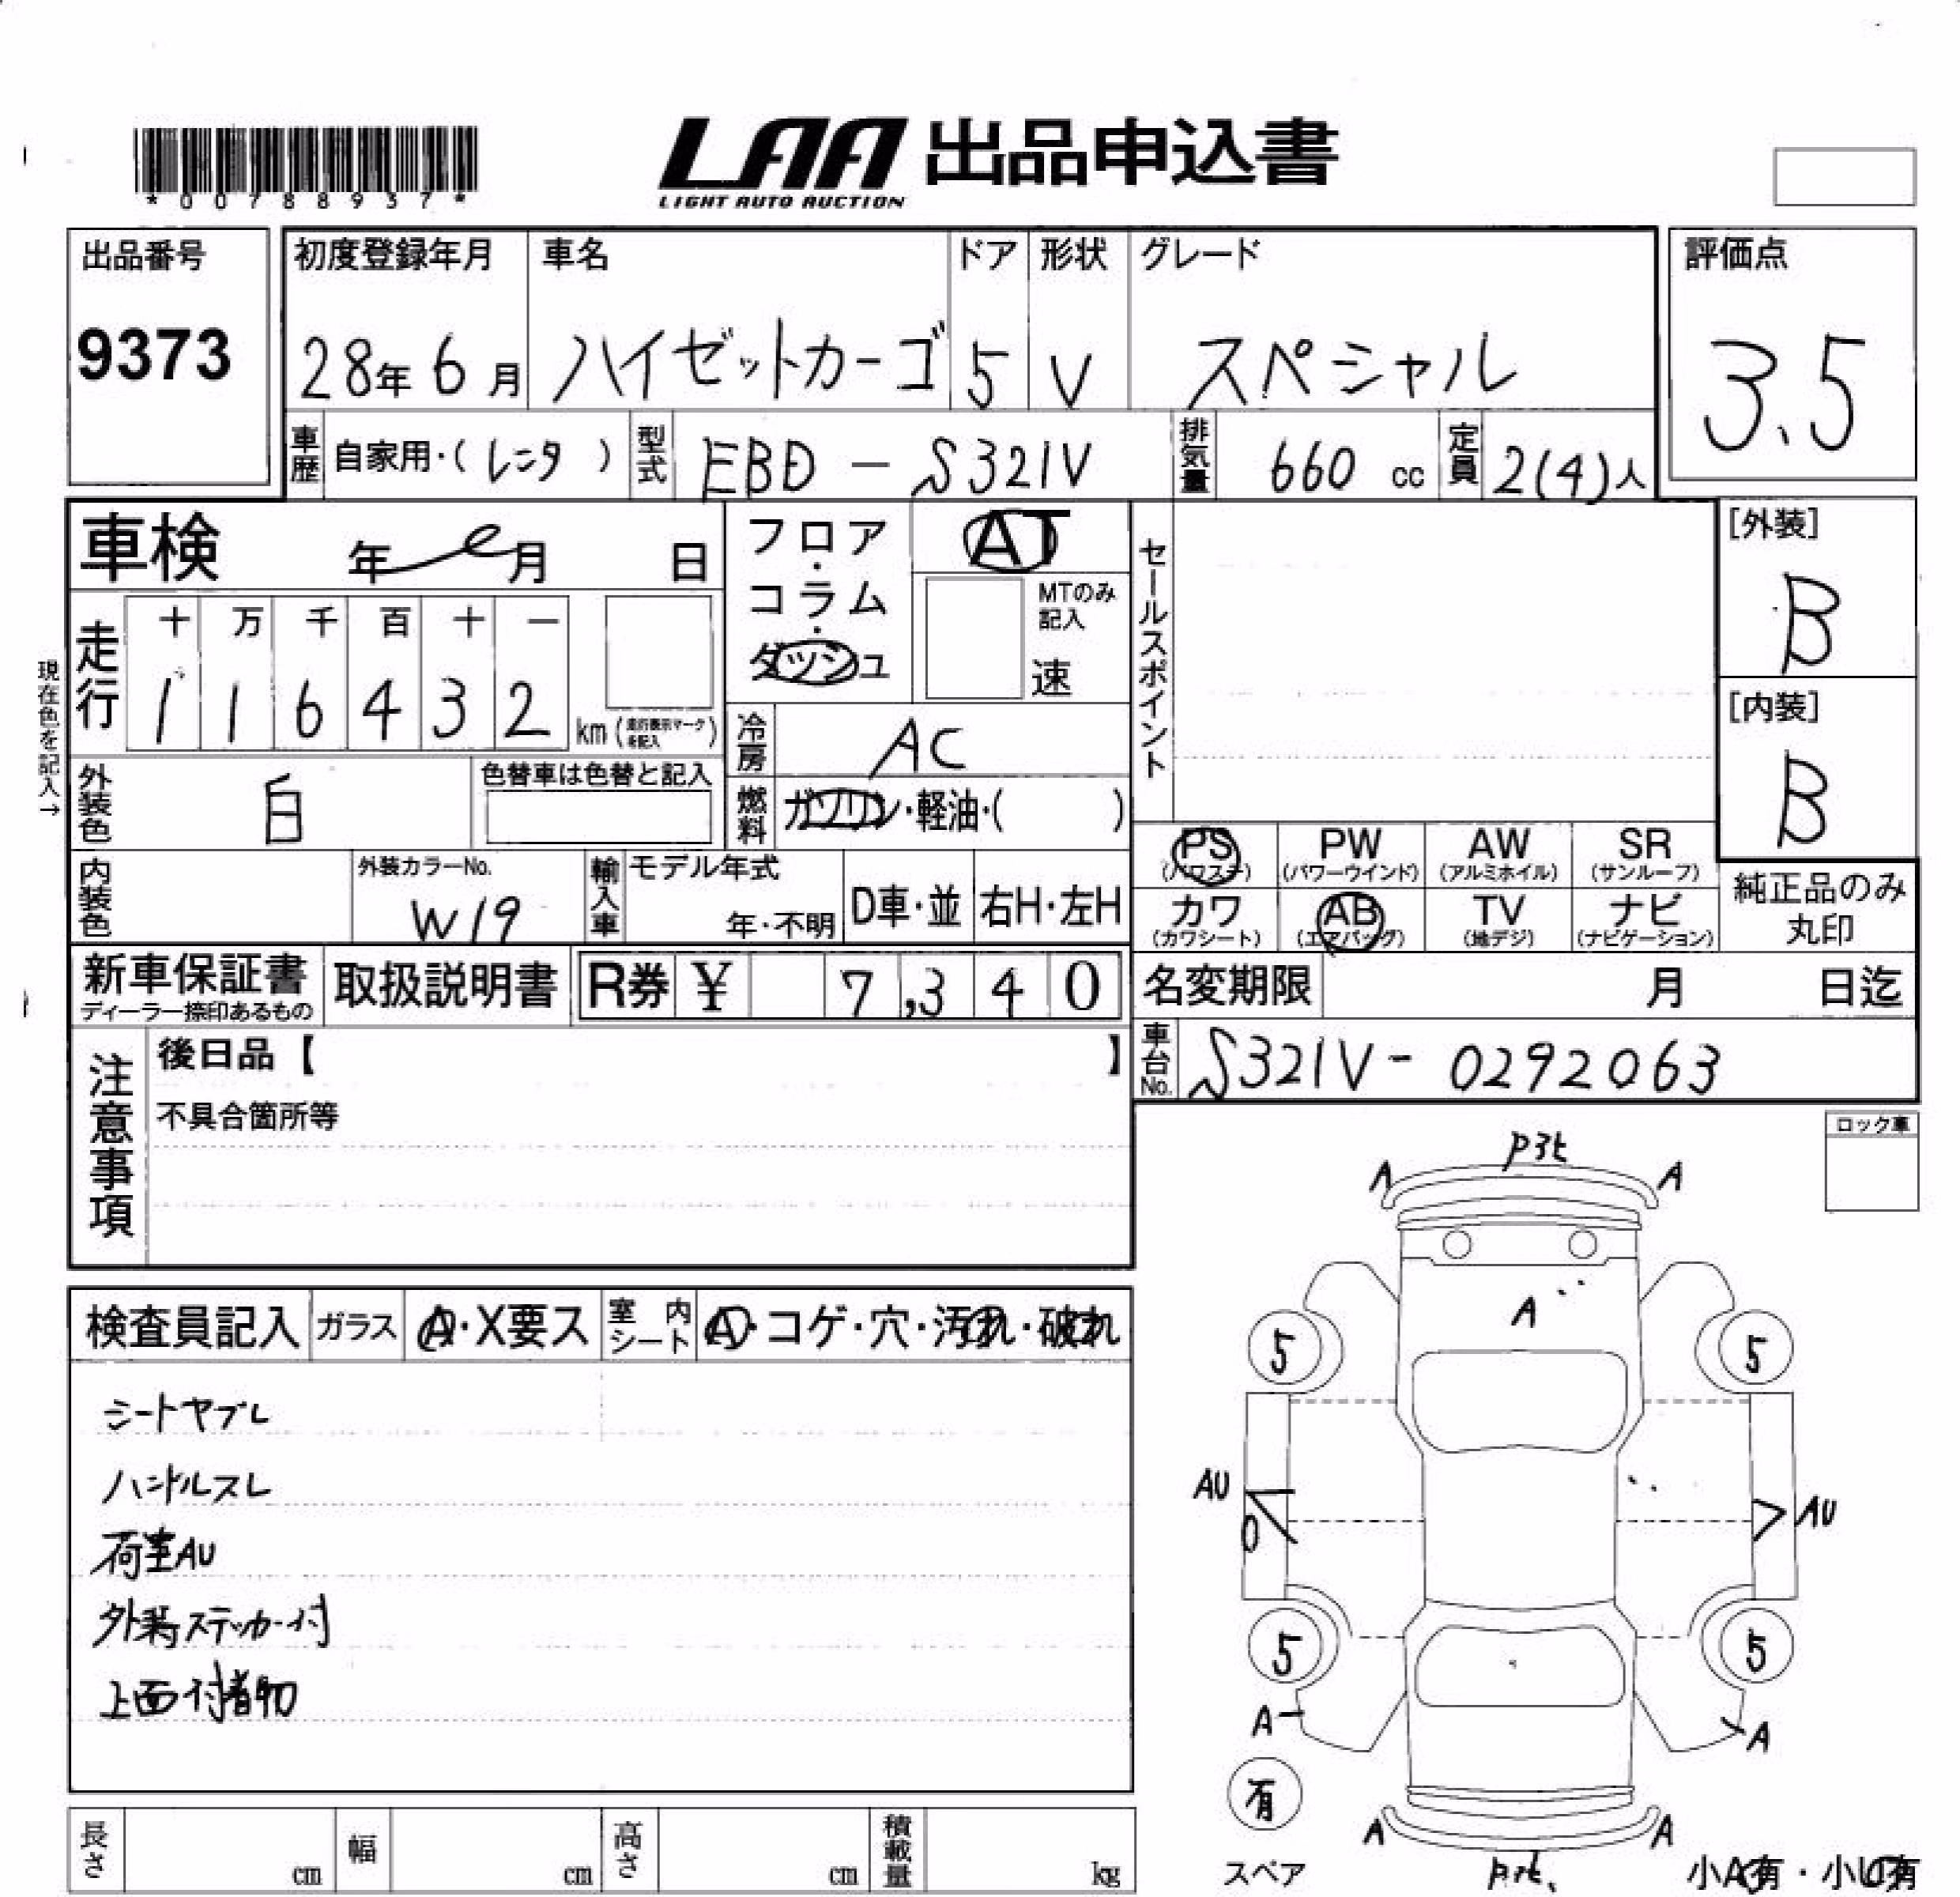 *00788937*
LAA 出品申込書
LIGHT AUTO AUCTION
出品番号
9373
初度登録年月
28年 6月
車名
ハイゼットカーゴ
ドア
5
形状
V
グレード
スペシャル
評価点
3.5
車歴 自家用・( レンタ )
型式 EBD - S321V
排気量 660 cc
定員 2(4)人
車検 年 月 日
フロア・コラム・ダッシュ
AT
MTのみ記入
速
セールスポイント
[外装]
B
[内装]
B
現在色を記入→
走行 十 万 千 百 十 一
1 1 6 4 3 2 km (走行表示マークを記入)
冷房 AC
燃料 ガソリン・軽油・( )
外装色 白
色替車は色替と記入
内装色
外装カラーNo.
W19
輸入車 モデル年式
年・不明
D車・並 右H・左H
PS (パワステ)
PW (パワーウインド)
AW (アルミホイル)
SR (サンルーフ)
カワ (カワシート)
AB (エアバッグ)
TV (地デジ)
ナビ (ナビゲーション)
純正品のみ丸印
新車保証書
ディーラー捺印あるもの
取扱説明書
R券 ¥ 7,340
名変期限 月 日迄
車台No. S321V- 0292063
注意事項
後日品【 】
不具合箇所等
ロック車
検査員記入 ガラス A・X要ス 室内シート A・コゲ・穴・汚れ・破れ
シートヤブレ
ハンドルスレ
荷室AU
外装ステッカー付
上面付着物
A A
A
5 5
AU AU
5 5
A A
有
スペア
A A
小A有・小U有
長さ cm 幅 cm 高さ cm 積載量 kg